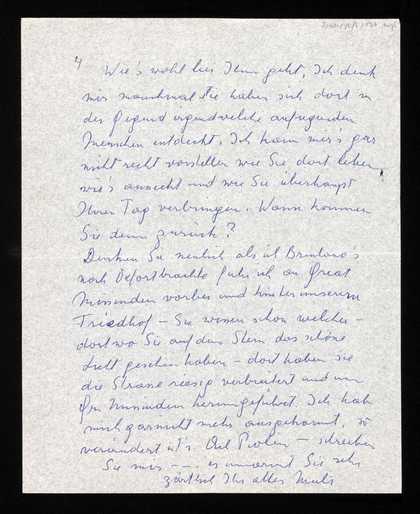 4
Wie's wohl bei Ihnen geht, Ich denk
mir manchmal Sie haben sich dort in
der Gegend irgendwelche aufregenden
Menschen entdeckt. Ich kann mir's gar
nicht recht vorstellen wie Sie dort leben,
wie's aussieht und wie Sie überhaupt
Ihren Tag verbringen. Wann kommen
Sie denn zurück?
Denken Sie neulich als ich
nach Oxford brachte fuhr ich an Great
Missenden vorbei und hinter unserem
Friedhof – Sie wissen schon welcher –
dort wo Sie auf dem Stein das schöne
gesehen haben – dort haben sie
die Strasse riesig verbreitert und um
Gr. Missenden herumgeführt. Ich hab
mich garnicht mehr ausgekannt, so
verändert ist's. – schreiben
Sie mir – – es umarmt Sie sehr
zärtlich Ihr altes